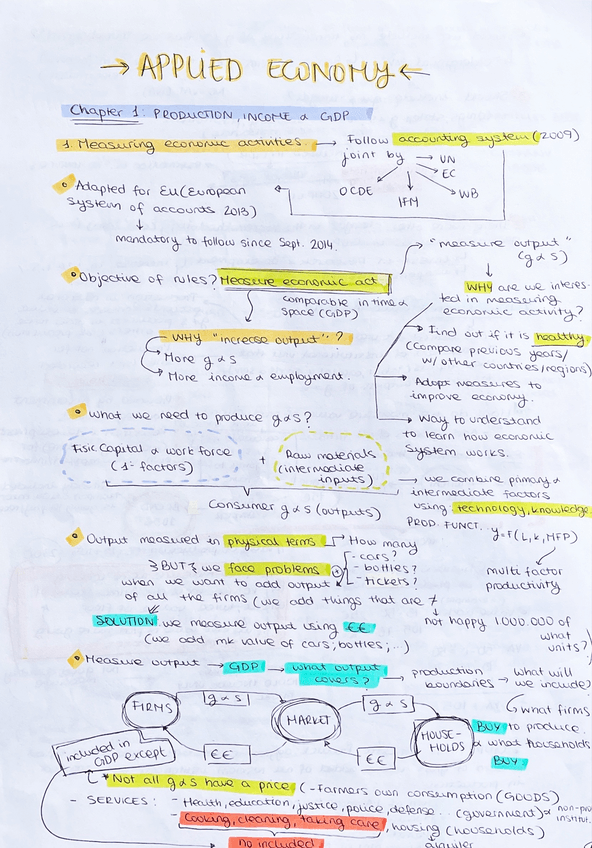 → APPLIED ECONOMY ←
Chapter 1: PRODUCTION, INCOME & GDP
1. Measuring economic activities. → Follow accounting system (2009)
joint by → UN
EC
OCDE
IFM
WB
Adapted for EU (European
system of accounts 2013)
↓
mandatory to follow since Sept. 2014.
Objective of rules? Measure economic act.
comparable in time &
space (GDP)
→ "measure output"
(g & s)
WHY are we interes-
ted in measuring
economic activity?
Find out if it is healthy
(compare previous years/
w/ other countries/regions)
Adopt measures to
improve economy.
Way to understand
to learn how economic
system works.
WHY "increase output"?
More g & s
More income & employment.
What we need to produce g & s?
Fisic Capital & work force
(1- factors)
+
Raw materials
(intermediate
inputs)
Consumer g & s (outputs)
→ we combine primary &
intermediate factors
using technology, knowledge
PROD. FUNCT. y=F(L,K,MFP)
multi factor
productivity
Output measured in physical terms → How many
- cars?
- bottles?
- tickets?
BUT we face problems
when we want to add output
of all the firms (we add things that are ≠
not happy 1.000.000 of
what
units?
SOLUTION we measure output using €€
(we add mk value of cars, bottles, ..)
Measure output → GDP → what output
covers? → production
boundaries → what will
we include?
what firms
BUY to produce.
& what households
BUY
FIRMS
g & s
MARKET
g & s
HOUSE-
HOLDS
€€
€€
included in
GDP except
* Not all g & s have a price (- Farmers own consumption (GOODS)
- SERVICES: - Health, education, justice, police, defense... (government) & non-pro
institut.
Cooking, cleaning, taking care, housing (households)
no included